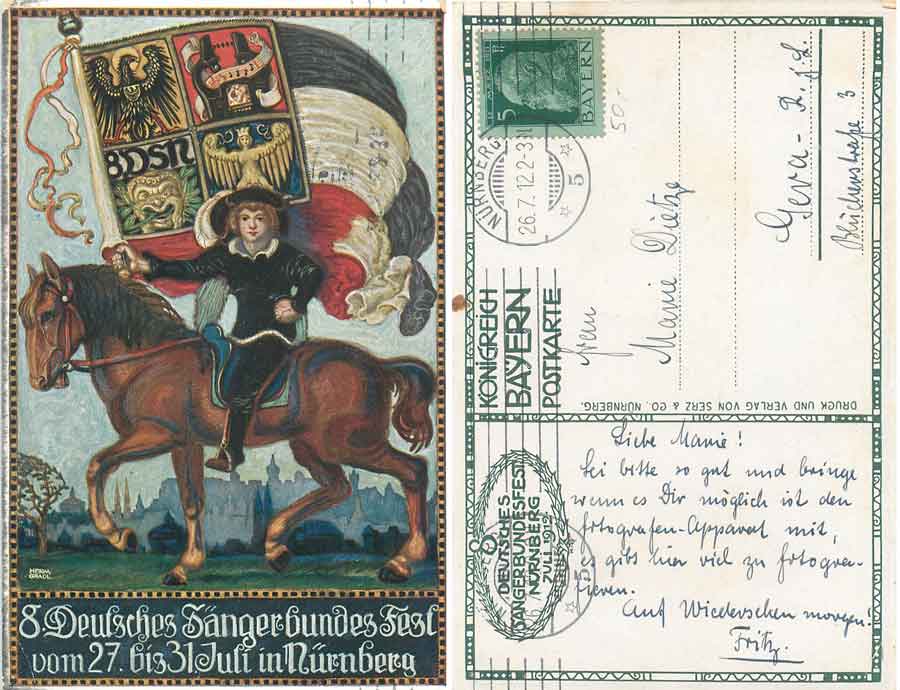 8.DSN
HERM.
GRADL
8. Deutsches Sängerbundes Fest
vom 27. bis 31. Juli in Nürnberg
5
BAYERN
50.-
NÜRNBERG
26.7.12.2-3
5
KÖNIGREICH
BAYERN
POSTKARTE
Mamie Dietze
Gera - R. j. L.
Blücherstraße 3
DRUCK UND VERLAG VON SERZ & CO. NÜRNBERG.
DEUTSCHES
SÄNGERBUNDESFEST
NÜRNBERG
JULI 1912
Liebe Mamie!
Sei bitte so gut und bringe
wenn es Dir möglich ist den
fotografen-Apparat mit,
es gibt hier viel zu fotogra-
fieren.
Auf Wiedersehen morgen!
Fritz.